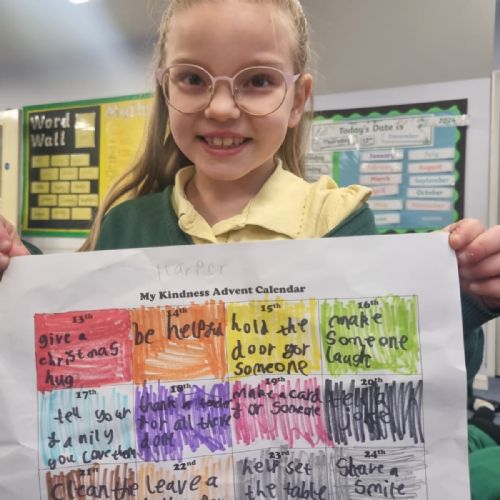 Word
Wall
Today's Date is
2024
Thursday
December
January
July
February
March
September
October
Harper
My Kindness Advent Calendar
13th
give a
christmas
hug
14th
be helpful
15th
hold the
door gor
someone
16th
make
someone
laugh
17th
tell your
family
you love them
18th
thank a
for all
done
19th
Make a card
for someone
20th
tell a
joke
21st
clean the
22nd
leave a
23rd
help set
the table
24th
Share a
Smile